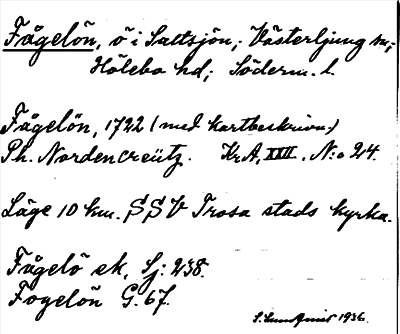 Fågelön, ö i Saltsjön; Västerljung sn;
Hölebo hd; Söderm. l.
Fågelön, 1722 (med kartbeskrivn.)
Ph. Nordencreütz. Kr.A, XXII. N:o 24.
Läge 10 km. SSV Trosa stads kyrka.
Fågelö ek, Sj: 238.
Fogelön G. 67.
S. Lundquist 1936.